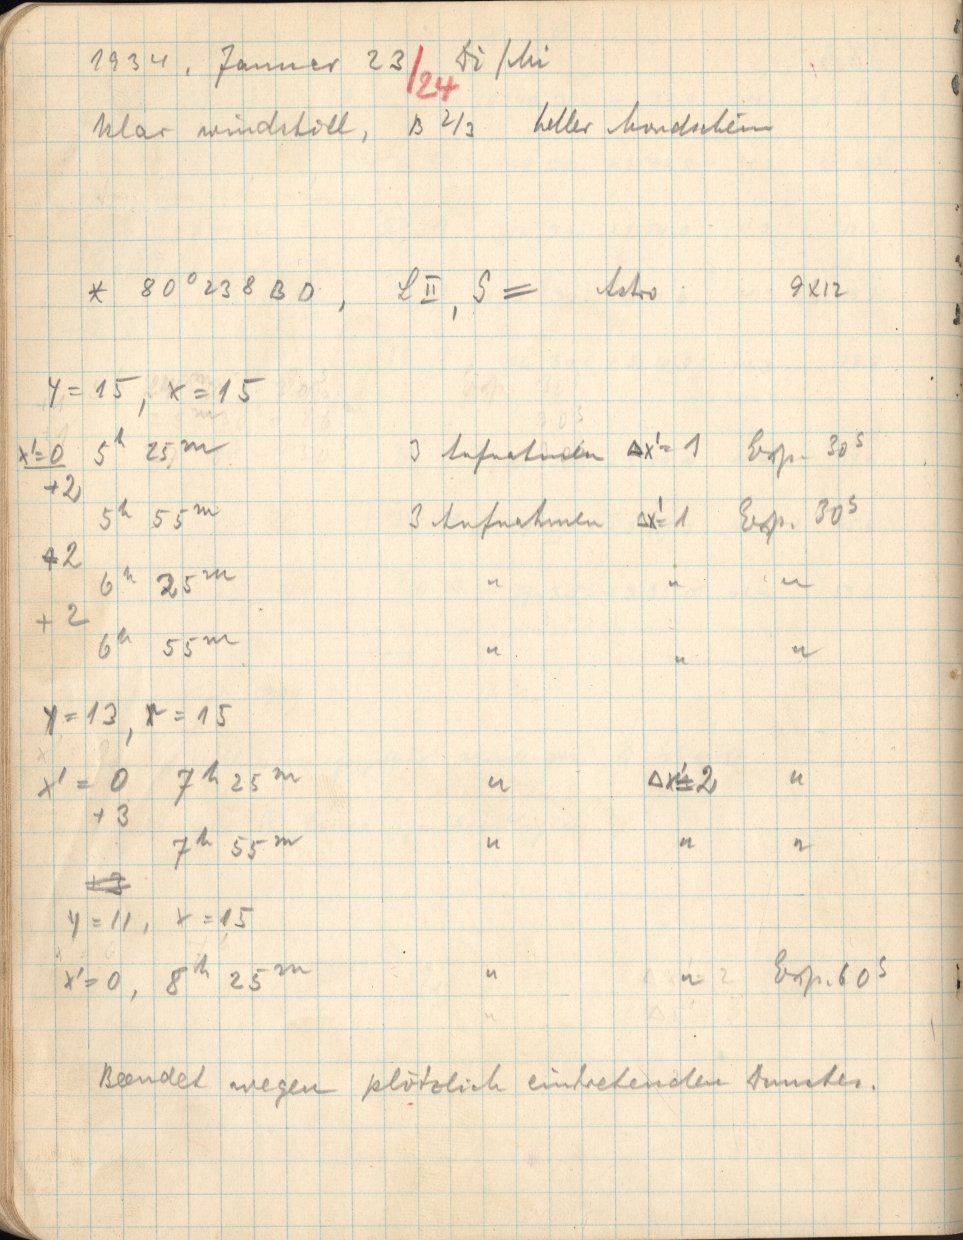 1934, Jänner 23/24 Di/Mi
klar windstill, B 2/3 heller Mondschein
* 80° 238 BD, L II, S = Astro 9x12
y = 15, x = 15
x' = 0 5h 25m 3 Aufnahmen Δx' = 1 Exp. 30s
+2
5h 55m 3 Aufnahmen Δx' = 1 Exp. 30s
+2
6h 25m " " "
+2
6h 55m " " "
y = 13, x = 15
x' = 0 7h 25m " Δx' = 2 "
+3
7h 55m " " "
+3
y = 11, x = 15
x' = 0, 8h 25m " " Exp. 60s
Beendet wegen plötzlich eintretenden Dunstes.